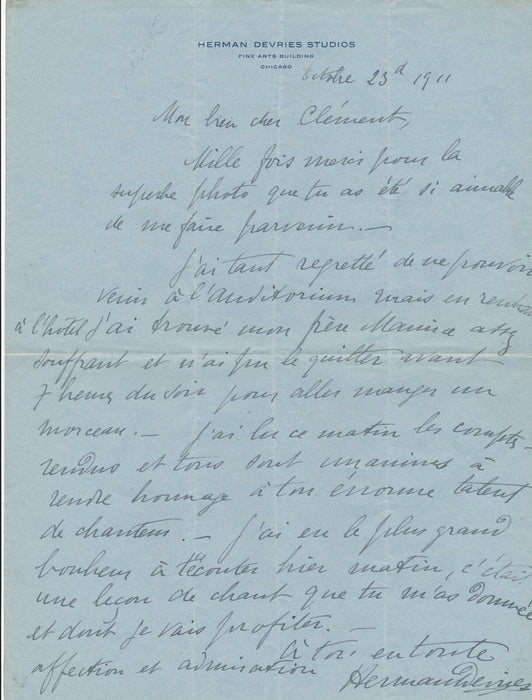 HERMAN DEVRIES STUDIOS
FINE ARTS BUILDING
CHICAGO
Octobre 23d 1911
Mon bien cher Clément,
Mille fois merci pour la
superbe photo que tu as été si aimable
de me faire parvenir. —
J'ai tant regretté de ne pouvoir
venir à l'Auditorium mais en
à l'hotel j'ai trouvé mon frère Maurice assez
souffrant et n'ai pu le quitter avant
7 heures du soir pour aller manger un
morceau. — J'ai lu ce matin les comptes-
rendus et tous sont unanimes à
rendre hommage à ton énorme talent
de chanteur. — J'ai eu le plus grand
bonheur à t'écouter hier matin, c'était
une leçon de chant que tu m'as donnée
et dont je vais profiter. —
à toi en toute
affection et admiration
Herman Devries